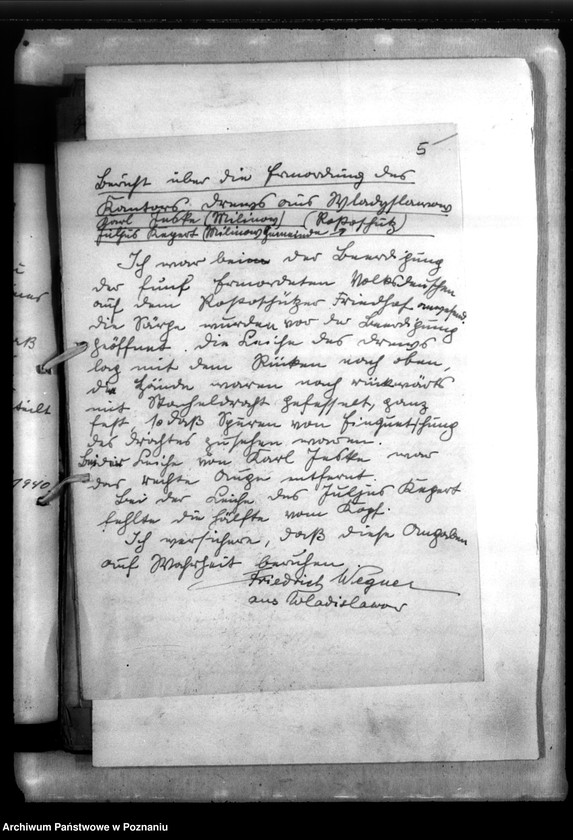 5
Bericht über die Ermordung des
Kantors Drews aus Wladyslawow
Karl Jeske (Milinow) (Rososchütz)
Juljus Kegert (Milinow Gemeinde
Ich war beim der Beerdigung
der fünf Ermordeten Volksdeutschen
auf dem Rososchützer Friedhof anwesend.
die Särge wurden vor der Beerdigung
geöffnet. Die Leiche des Drews
lag mit dem Rücken nach oben,
die Hände waren nach rückwärts
mit Stacheldraht gefesselt, ganz
fest, so daß Spuren von Einquetschung
des Drahtes zu sehen waren.
Bei der Leiche von Karl Jeske war
das rechte Auge entfernt
Bei der Leiche des Juljus Kegert
fehlte die Hälfte vom Kopf.
Ich versichere, daß diese Angaben
auf Wahrheit beruhen
Friedrich Wegner
aus Wladislawow
aß
teilt
1940
Archiwum Państwowe w Poznaniu